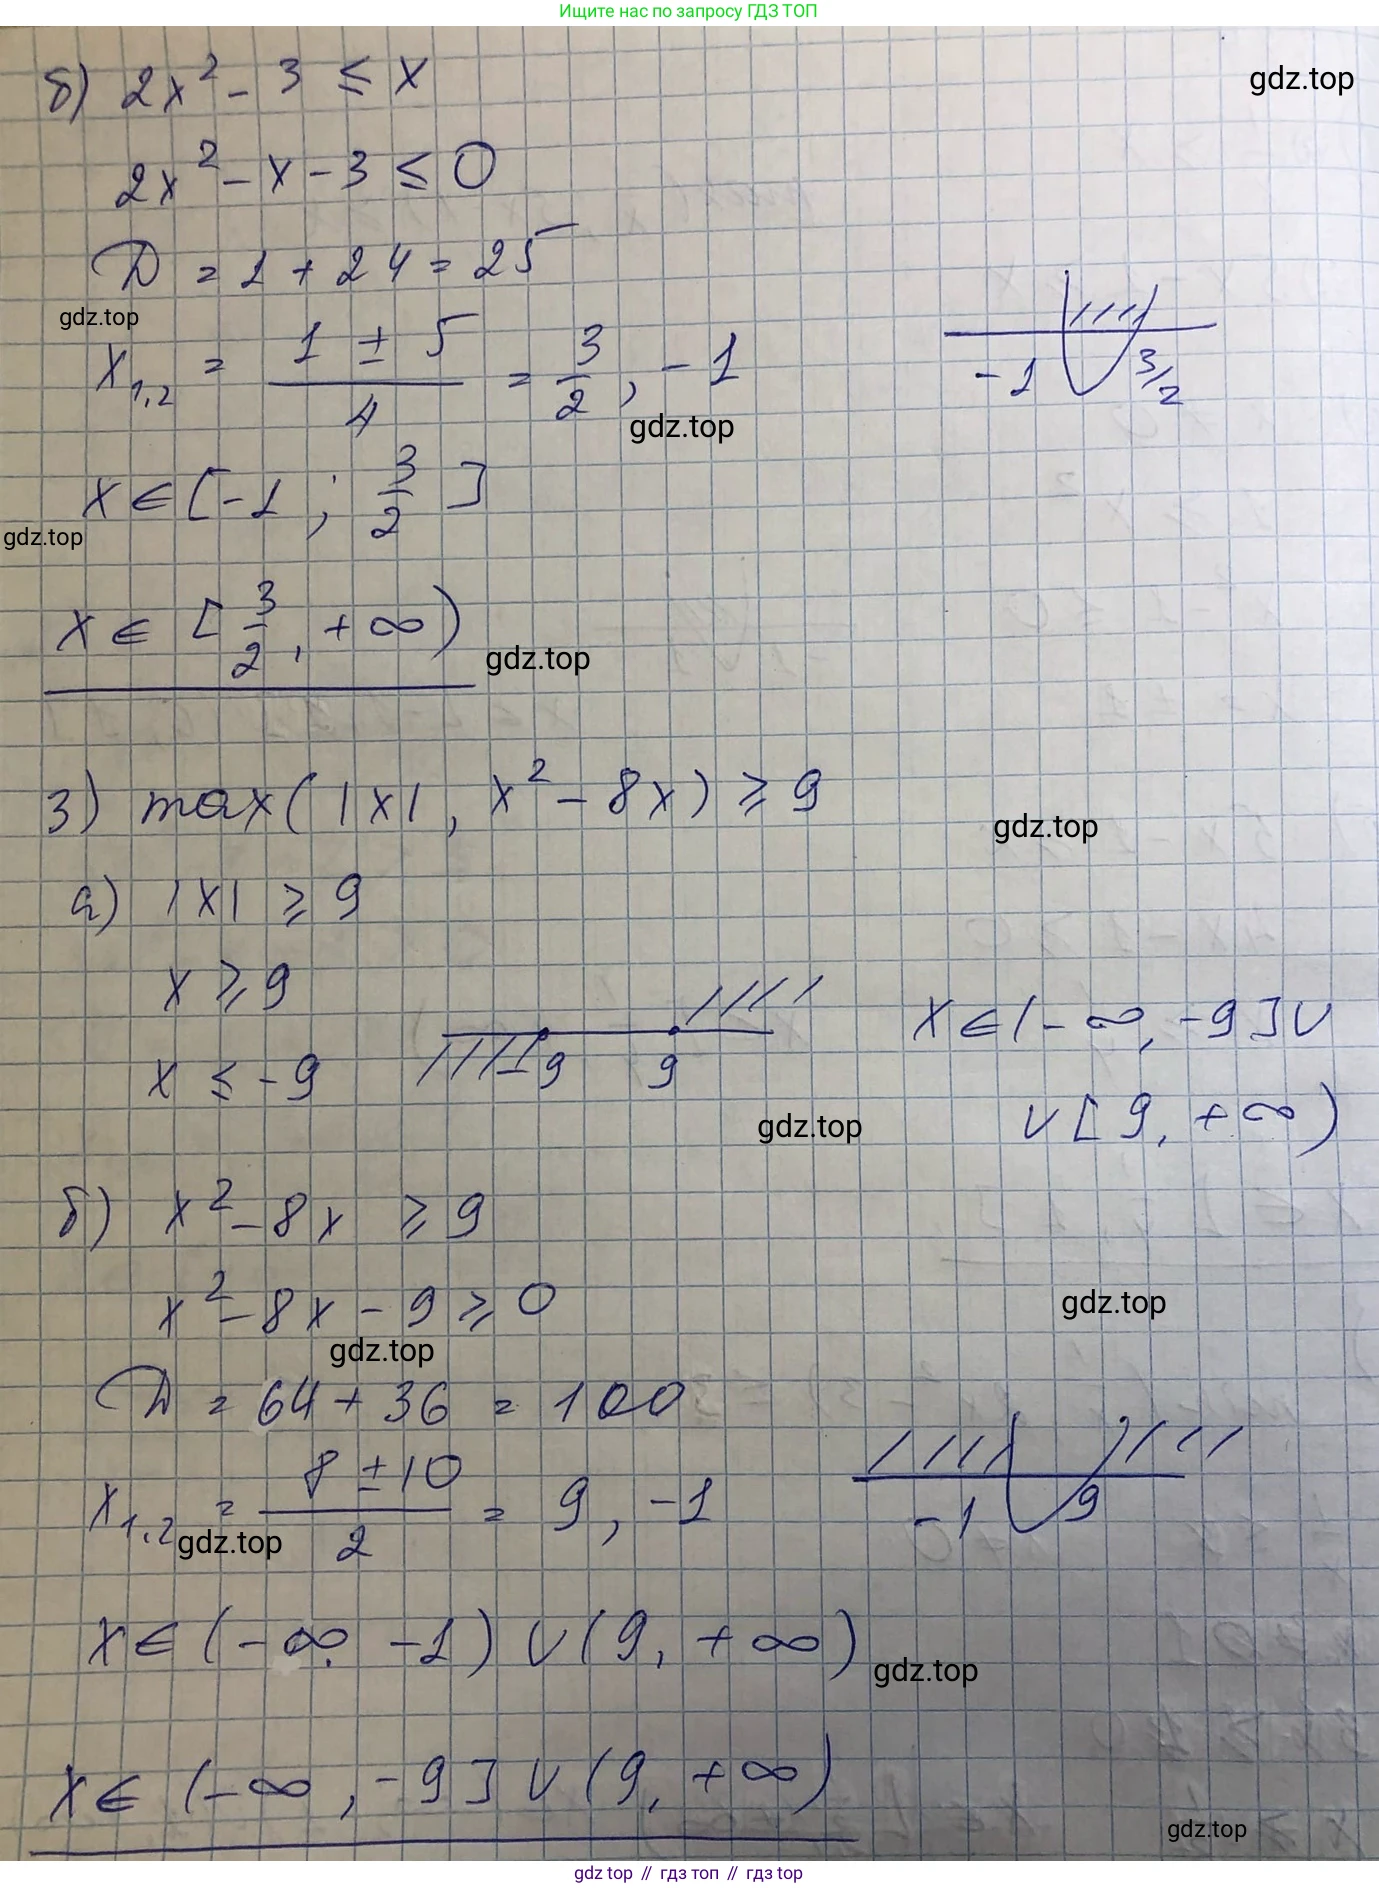 Ищите нас по запросу ГДЗ ТОП
gdz.top
б) 2x² - 3 ≤ x
2x² - x - 3 ≤ 0
D = 1 + 24 = 25
gdz.top
x₁,₂ = (1 ± 5)/4 = 3/2, -1
-1 3/2
gdz.top
x ∈ [-1; 3/2]
gdz.top
x ∈ [3/2, +∞)
gdz.top
3) max(|x|, x² - 8x) ≥ 9
gdz.top
а) |x| ≥ 9
x ≥ 9
x ≤ -9
-9 9
x ∈ (-∞, -9] ∪
∪ [9, +∞)
gdz.top
б) x² - 8x ≥ 9
x² - 8x - 9 ≥ 0
gdz.top
gdz.top
D = 64 + 36 = 100
x₁,₂ = (8 ± 10)/2 = 9, -1
-1 9
gdz.top
x ∈ (-∞, -1) ∪ (9, +∞)
gdz.top
x ∈ (-∞, -9] ∪ (9, +∞)
gdz.top
gdz top // гдз топ // гдз top